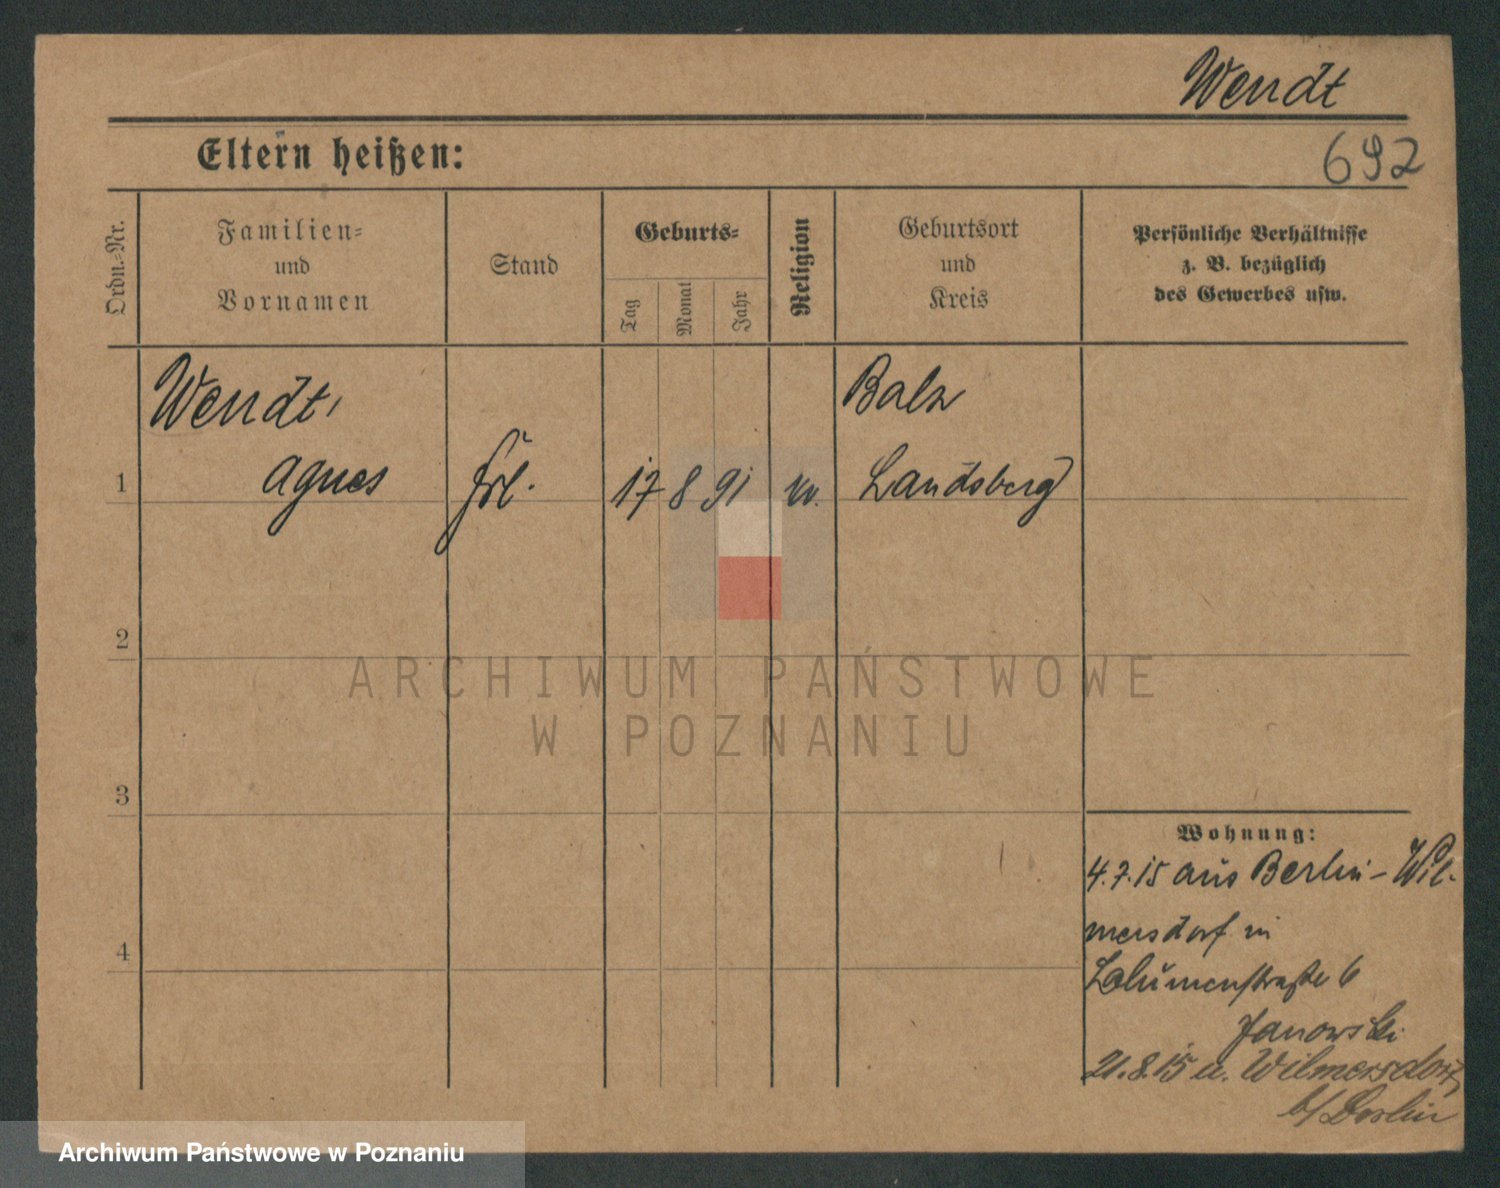 Wendt
692
Eltern heißen:
Ordn.-Nr.
Familien-
und
Vornamen
Stand
Geburts-
Tag
Monat
Jahr
Religion
Geburtsort
und
Kreis
Persönliche Verhältnisse
z. B. bezüglich
des Gewerbes usw.
Wendt,
Agnes
Frl.
17 8 91
Balz
Landsberg
1
2
3
4
ARCHIWUM PAŃSTWOWE
W POZNANIU
Wohnung:
4.7.15 aus Berlin-Wil-
mersdorf in
Blumenstraße 6
Janowski
21.8.15 n. Wilmersdorf
b/Berlin
Archiwum Państwowe w Poznaniu